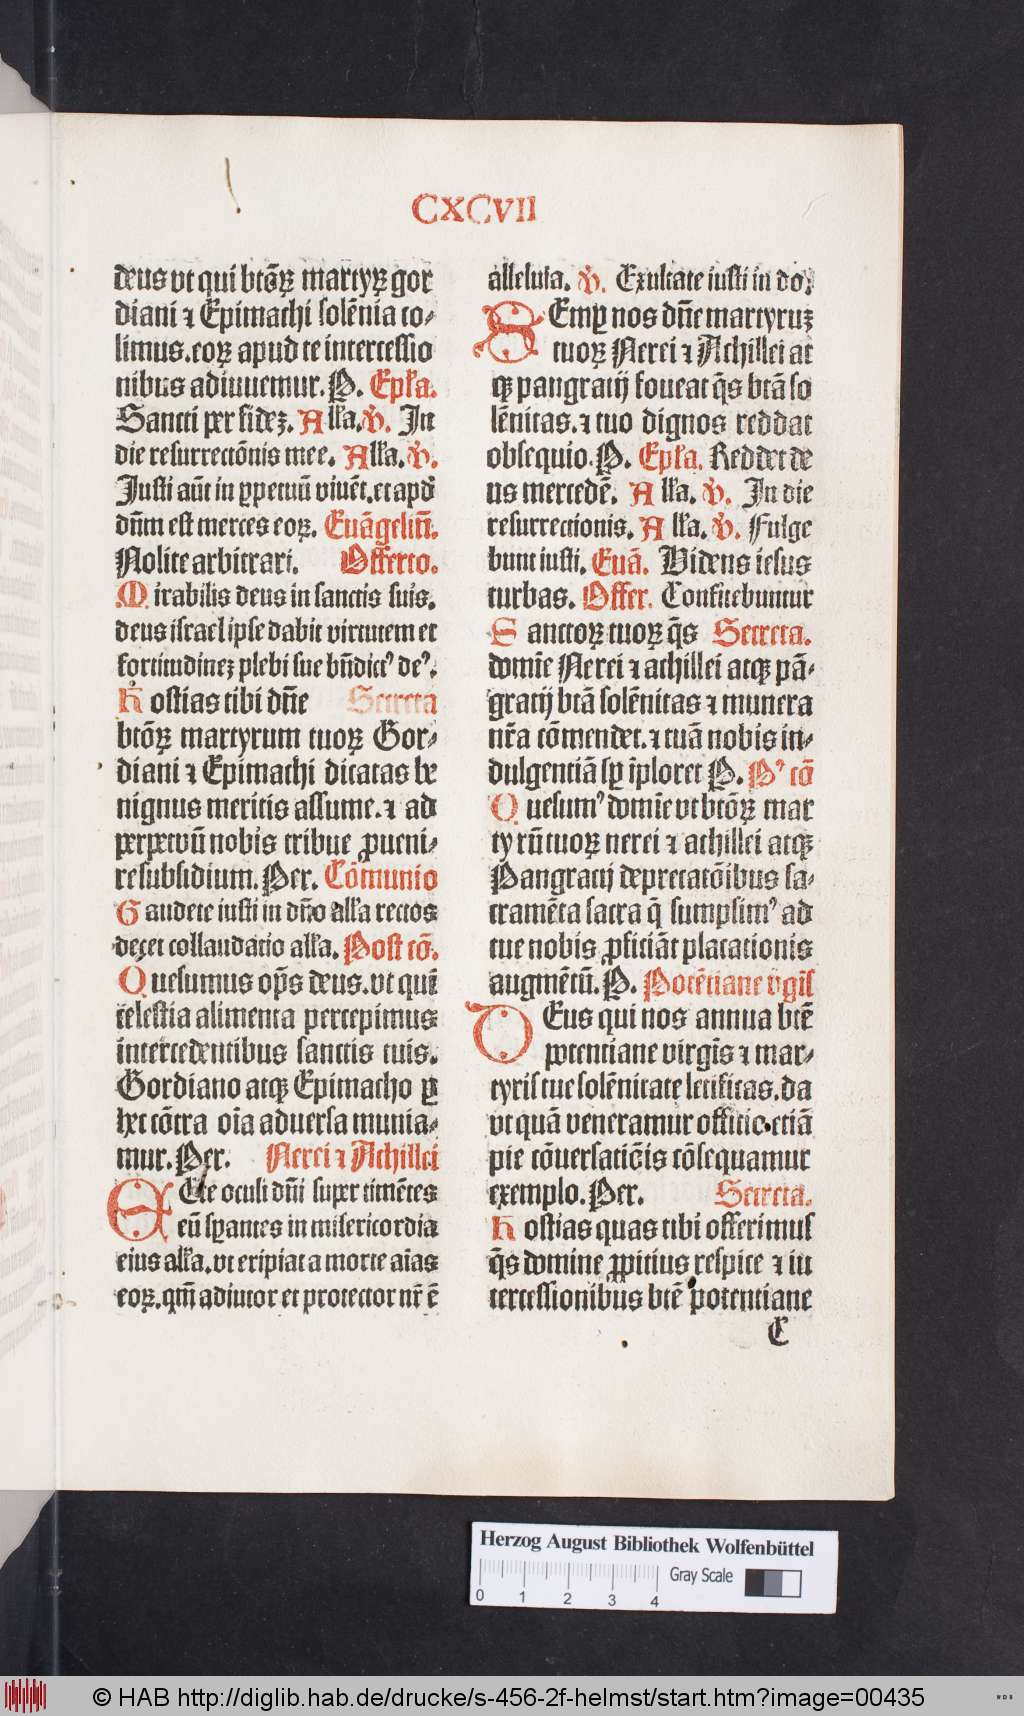 CXCVII
deus vt qui btōꝝ martyꝝ gor
diani ⁊ Epimachi solēnia co⸗
limus.eoꝝ apud te intercessio
nibus adiuuemur.P. Epła.
Sancti per fidēꝫ. Alła.℣. In
die resurrectōnis mee. Alła.℣.
Justi aūt in ꝑpetuū viuēt.et apđ
dn̄m est merces eoꝝ. Euāgeliū.
Nolite arbitrari. Offerto.
Mirabilis deus in sanctis suis.
deus israel ipse dabit virtutem et
fortitudineꝫ plebi sue bn̄dictꝰ deꝰ.
Hostias tibi dn̄e Secreta
btōꝝ martyrum tuoꝝ Gor⸗
diani ⁊ Epimachi dicatas be
nignus meritis assume.⁊ ad
perpetuū nobis tribue ꝓueni⸗
re subsidium.Per. Cōmunio
Gaudete iusti in dn̄o alła rectos
decet collaudatio alła. Post cō.
Quesumus op̄s deus.vt qui
celestia alimenta percepimus
intercedentibus sanctis tuis.
Gordiano atqꝫ Epimacho ꝑ
hec cōtra oīa aduersa munia⸗
mur.Per. Nerei ⁊ Achillei
Ecce oculi dn̄i super timētes
eū sꝑantes in misericordia
eius alła.vt eripiat a morte aīas
eoꝝ.qm̄ adiutor et protector nr̄ ē
alleluia. ℣. Exultate iusti in do.
Semꝑ nos dn̄e martyruꝫ
tuoꝝ Nerei ⁊ Achillei at
qꝫ pangratij foueat q̄s btā so
lēnitas.⁊ tuo dignos reddat
obsequio.P. Epła. Reddet de
us mercedē. Alła. ℣. In die
resurrectionis. Alła. ℣. Fulge
bunt iusti. Euā. Videns iesus
turbas. Offer. Confitebuntur
Sanctoꝝ tuoꝝ q̄s Secreta.
domīe Nerei ⁊ achillei atqꝫ pā⸗
gratij btā solēnitas ⁊ munera
nr̄a cōmendet.⁊ tuā nobis in⸗
dulgentiā sꝑ īploret P. Pꝰ cō
Quesumꝰ domīe vt btōꝝ mar
tyrū tuoꝝ nerei ⁊ achillei atqꝫ
Pangracij deprecatōibus sa⸗
cramēta sacra q̄ sumpsimꝰ ad
tue nobis ꝓficiāt placationis
augmētū.P. Potētiane v̄gīs
Deus qui nos annua btē
potentiane virgīs ⁊ mar⸗
tyris tue solēnitate letificas.da
vt quā veneramur officio.etiā
pie cōuersatiōis cōsequamur
exemplo.Per. Secreta.
Hostias quas tibi offerimus
q̄s domine ꝓpitius respice ⁊ in
tercessionibus btē potentiane
C
Herzog August Bibliothek Wolfenbüttel
Gray Scale
0 1 2 3 4
© HAB http://diglib.hab.de/drucke/s-456-2f-helmst/start.htm?image=00435